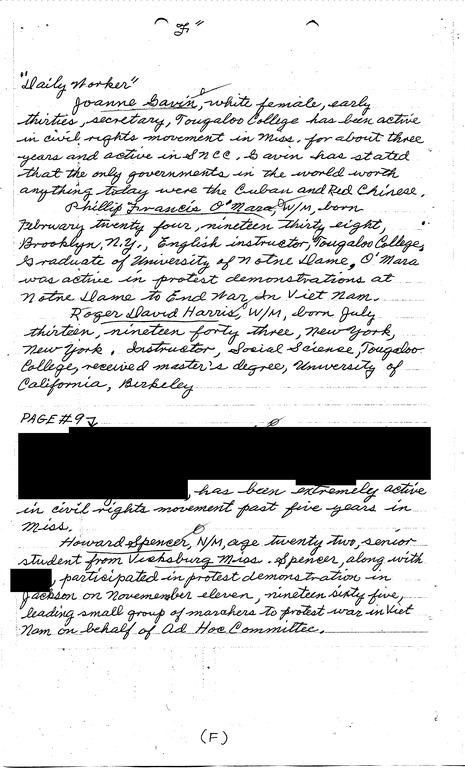 "F"
"Daily Worker"
Joanne Gavin, white female, early
thirties, secretary, Tougaloo College has been active
in civil rights movement in Miss. for about three
years and active in SNCC. Gavin has stated
that the only governments in the world worth
anything today were the Cuban and Red Chinese.
Phillip Francis O'Mara, W/M, born
February twenty four, nineteen thirty eight,
Brooklyn, N.Y., English instructor, Tougaloo College,
Graduate of University of Notre Dame, O'Mara
was active in protest demonstrations at
Notre Dame to End War In Viet Nam.
Roger David Harris, W/M, born July
thirteen, nineteen forty three, New York,
New York. Instructor, Social Science, Tougaloo
College, received master's degree, University of
California, Birkeley
PAGE #9
, has been extremely active
in civil rights movement past five years in
Miss.
Howard Spencer, N/M, age twenty two, senior
student from Vicksburg Miss. Spencer, along with
, participated in protest demonstration in
Jackson on Novemember eleven, nineteen sixty five,
leading small group of marchers to protest war in Viet
Nam on behalf of Ad Hoc Committee.
(F)